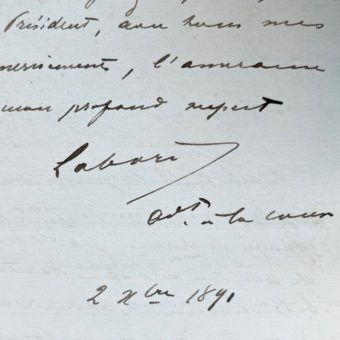 Président, avec tous mes
remerciements, l'assurance
mon profond respect
Labori
Avt. à la cour
2 Xbre 1891